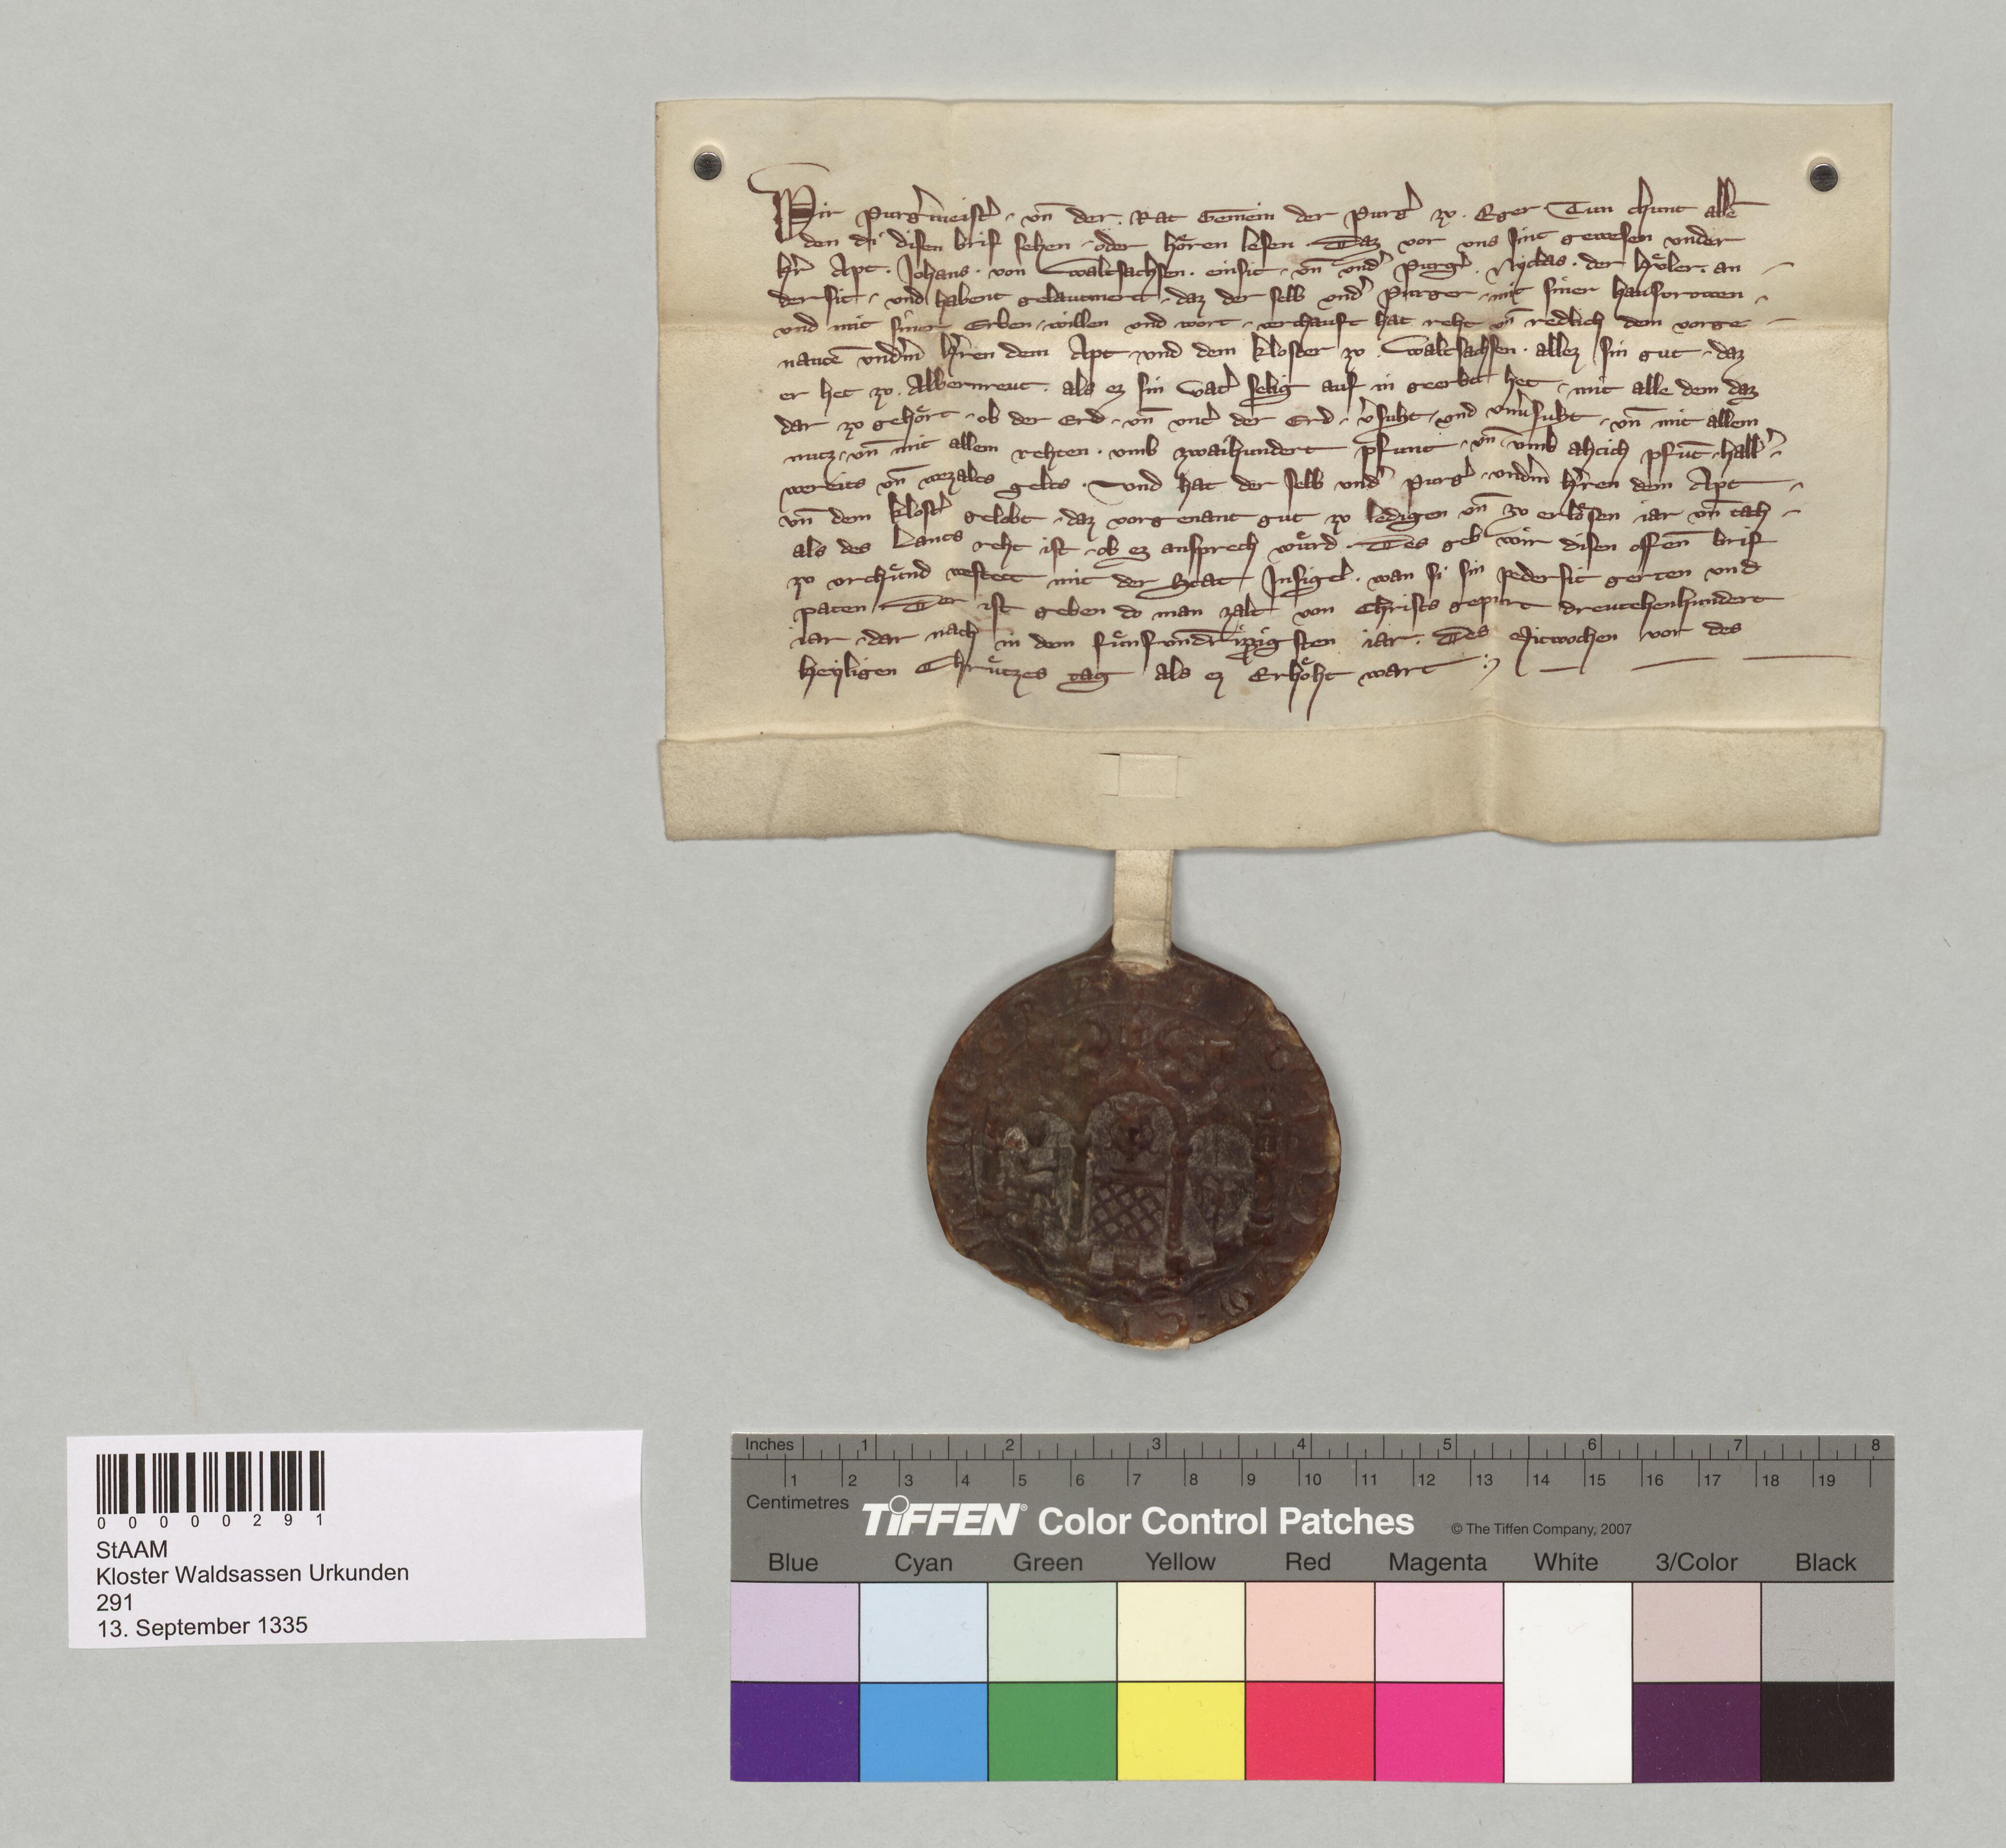 Wir Purgͬmeistͬ · vn̄ der · Rat Gem̄ein der Purgͬ zv · Eger Tun chunt allē
den di disen brif sehen · oder hoͤren lesen · Daz vor uns sint gewesen vnder
hͬr Apt · Johans · von Waltsachsen · einsit · vn̄ vndͬ Purgͬ · Nyclas · der · an
dersit · und habent gelautmert · daz der selb vndͬ Purger · mit siner hausvrowen
vnd mit siner Erben · willen vnd wort · verchauft hat reht vn̄ redlich dem vorge
nantē vndͬm hͬren dem Apt vnd dem kloster zv · Waltsachsen · allez sin gut · daz
er het zv · Albernreut · als ez sin vatͬ selig auf in geerbt het · mit alle dem daz
dar zv gehoͤrt · ob der Erd · vn̄ vntͬ der Erd · vͬsuht · vnd vnvͬsuht · vn̄ mit allem
nutz · vn̄ mit allem rehten · vmb zwaihundert pfunt · vn̄ vmb ahtich pfūt · hallͬ
wereits vn̄ wezalts gelts · Vnd hat der selb vndͬ Purgͬ · vndͬm hͬren dem Apt
vn̄ dem klostͬ gelobt · daz vorgenant gut zv ledigen vn̄ zv erloͤsen iar vn̄ tach
als des Lants reht ist · ob ez ansprech wuͤrd · Des geb wir disen offen̄ brif
zv vrchuͤnd vestect mit der Stat Jnsigel · wan si sin pedersit gerten vnd
paten Der ist geben do man zalt von Christs gepurt dreutehenhundert
iar · dar nach in dem fuͤnfvndreizzigsten iar · Des Mitwochen vor des
heyligen Chruͤtzes tag als ez Erhoͤht wart
0 0 0 0 0 2 9 1
StAAM
Kloster Waldsassen Urkunden
291
13. September 1335
Inches 1 2 3 4 5 6 7 8
1 2 3 4 5 6 7 8 9 10 11 12 13 14 15 16 17 18 19
Centimetres
TIFFEN® Color Control Patches © The Tiffen Company, 2007
Blue Cyan Green Yellow Red Magenta White 3/Color Black